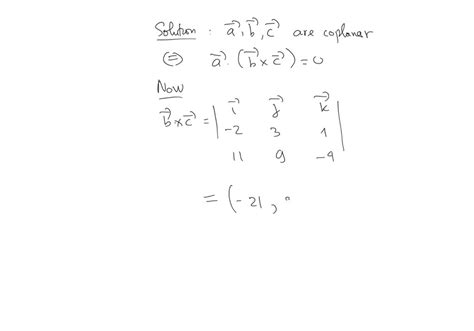 Solution : a⃗, b⃗, c⃗ are coplanar
⇔ a⃗ · (b⃗ × c⃗) = 0
Now
b⃗ × c⃗ = | i⃗ j⃗ k⃗ |
-2 3 1
11 9 -4
= (-21 ,